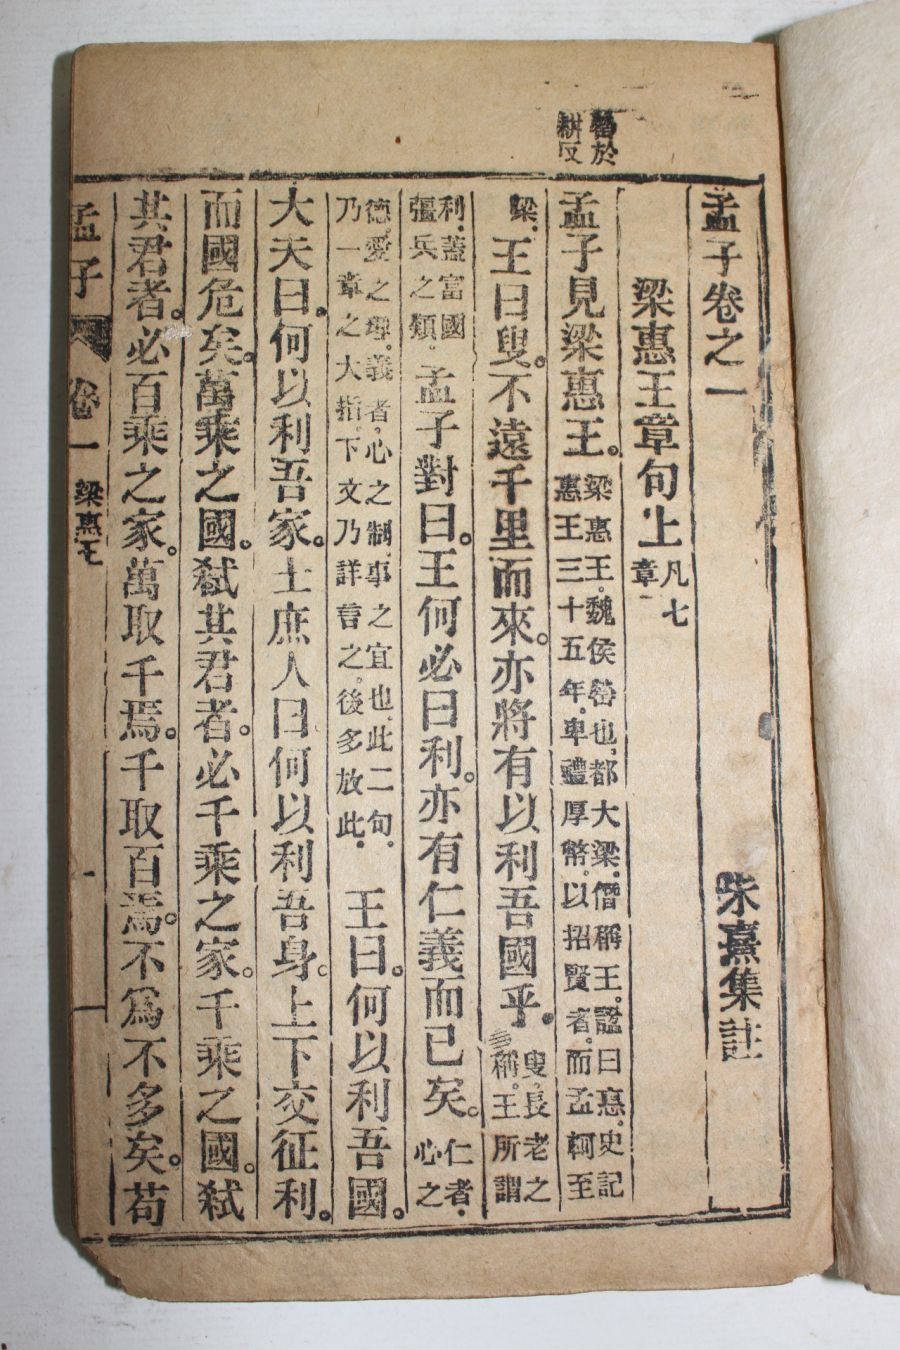 罃於
耕反
孟子卷之一
朱熹集註
梁惠王章句上
凡七
章
孟子見梁惠王。
梁惠王。魏侯罃也。都大梁。僭稱王。諡曰惠。史記
惠王三十五年。卑禮厚幣。以招賢者。而孟軻至
梁。
王曰叟。不遠千里而來。亦將有以利吾國乎。
叟。長老之
稱。王所謂
利。蓋富國
彊兵之類。
孟子對曰。王何必曰利。亦有仁義而已矣。
仁者。
心之
德。愛之理。義者。心之制。事之宜也。此二句。
乃一章之大指。下文乃詳言之。後多放此。
王曰。何以利吾國。
大夫曰。何以利吾家。士庶人曰何以利吾身。上下交征利。
而國危矣。萬乘之國。弒其君者。必千乘之家。千乘之國。弒
其君者。必百乘之家。萬取千焉。千取百焉。不爲不多矣。苟
孟子 卷一 梁惠王